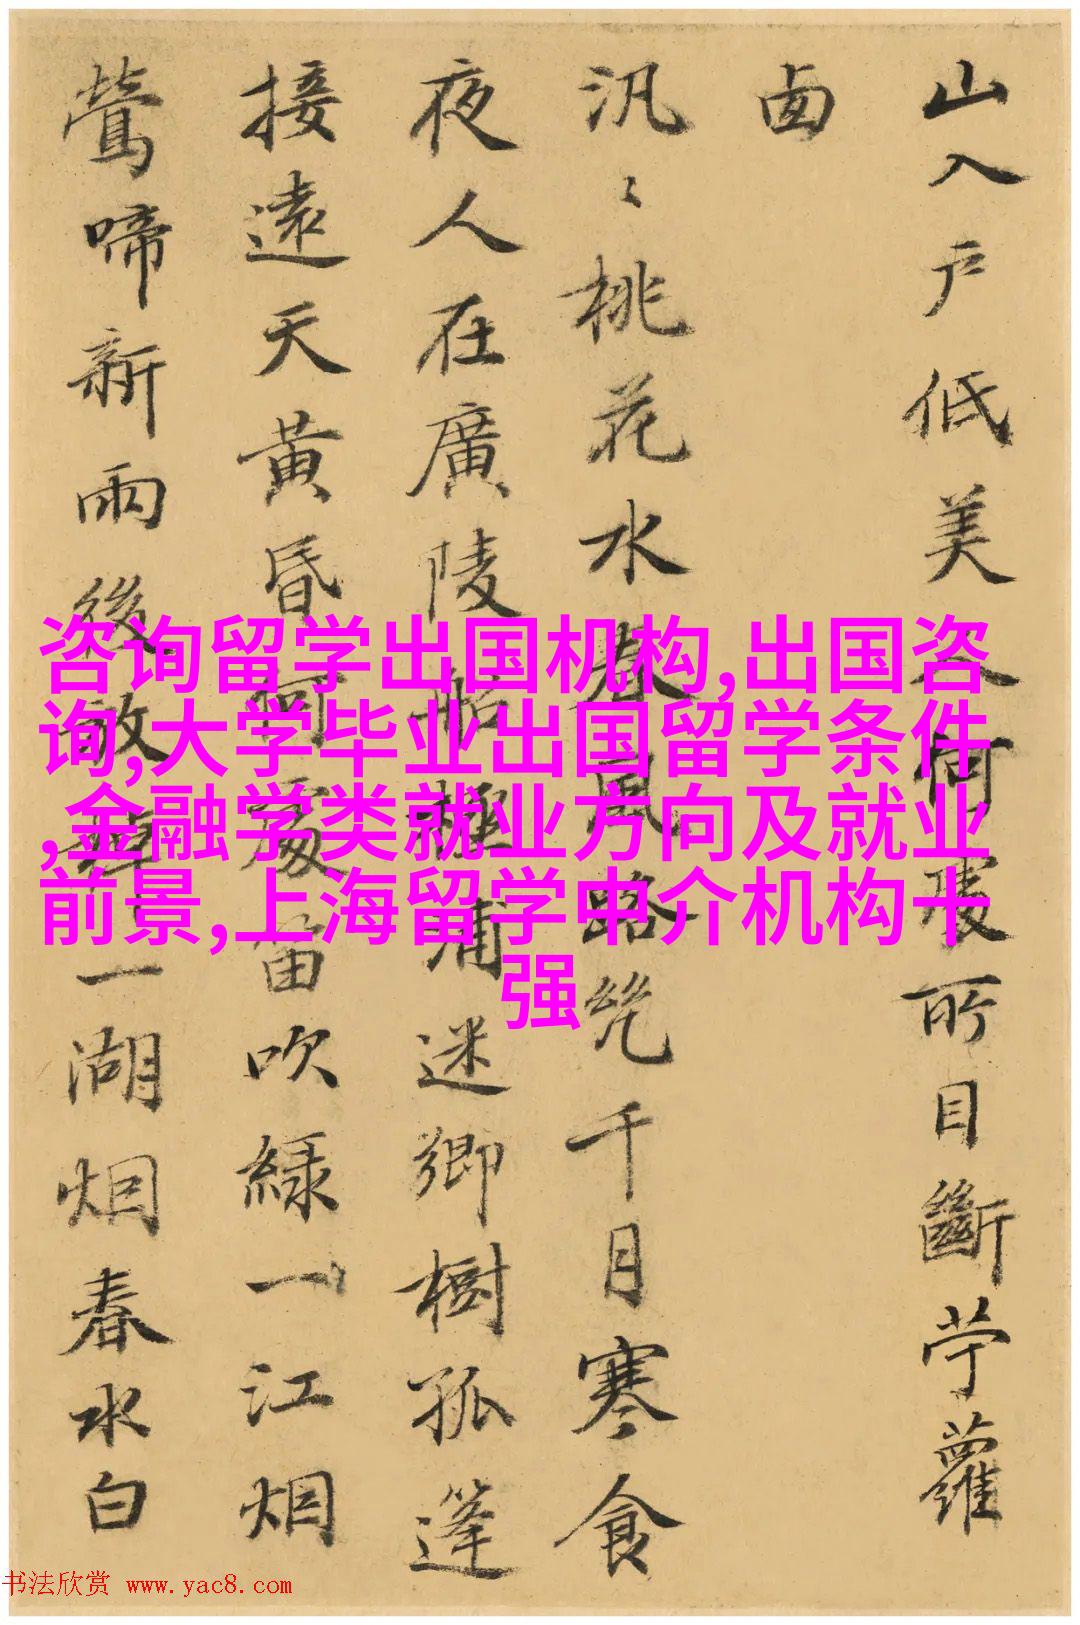 山入戶低美人何處所目斷苧蘿
卥
汎〻桃花水春風路幾千月寒食
夜人在廣陵船極浦迷鄉樹孤篷
接遠天黃昏何處笛吹綠一江烟
鶯啼新雨後放棹一湖烟春水白
咨询留学出国机构,出国咨
询,大学毕业出国留学条件
,金融学类就业方向及就业
前景,上海留学中介机构十
强
书法欣赏 www.yac8.com